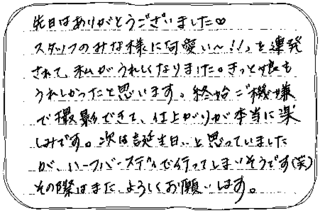 先日はありがとうございました♡
スタッフのみな様に可愛い〜!!を連発
されて、私がうれしくなりました。きっと娘も
うれしかったと思います。終始ご機嫌
で撮影できて、仕上がりが本当に楽
しみです。次は誕生日…と思っていました
が、ハーフバースデイで行ってしまいそうです(笑)
その際はまた、よろしくお願いします。